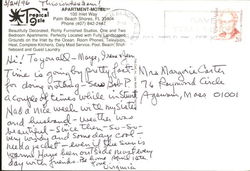 3/21/96 Thursday
Tropical Gate
APARTMENT-MOTEL
100 Inlet Way
Palm Beach Shores, FL 33404
Phone (407)
Beautifully Decorated, Richly Furnished Studios, One and Two
Bedroom Apartments. Perfectly Located with Fully Landscaped
Grounds on the Inlet by the Ocean. Room Phones, Television,
Heat, Complete Kitchens, Daily Maid Service, Pool, Beach, Shuf-
fleboard and Guest Laundry.
Hi! To you all -
Time is going pretty fast -
for doing nothing - See
a couple of times while in town
Had a nice week with my sister
and husband - weather was
beautiful - Since then so-so-
very windy and some days cool
need a jacket - even if the sun is
warm. Have been outside most every
day with friends. Be home
Virginia
Mrs Marjorie Carter
76 Raymond Circle
Agawam, Mass 01001